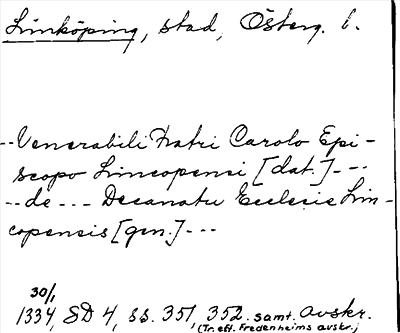 Linköping, stad, Österg. l.
--Venerabili Fratri Carolo Epi-
scopo Lincopensi [dat.]---
--de --- Decanatu Ecclesie Lin-
copensis [gen.]---
30/1
1334, SD 4, ss. 351, 352. samt. avskr.
(Tr. eft. Fredenheims avskr.)